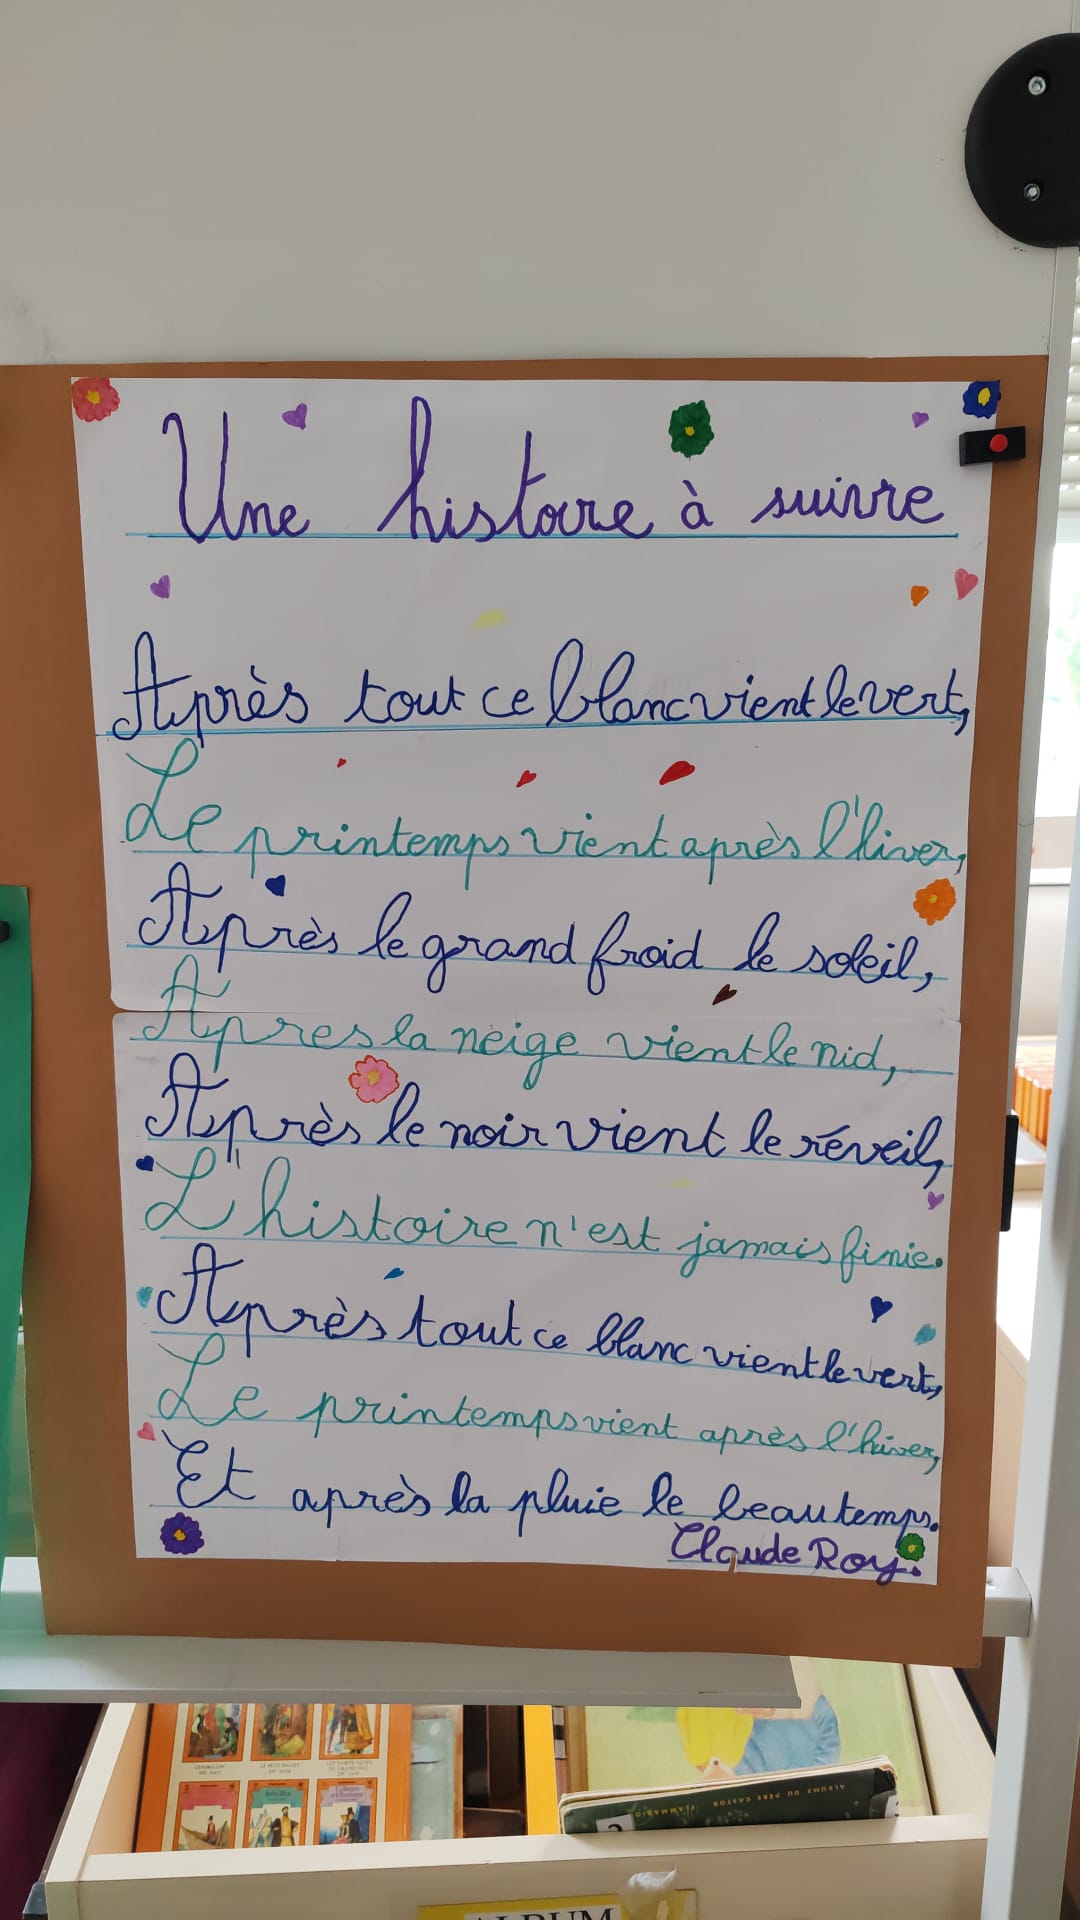 Une histoire à suivre
Après tout ce blanc vient le vert,
Le printemps vient après l'hiver,
Après le grand froid le soleil,
Après la neige vient le nid,
Après le noir vient le réveil,
L'histoire n'est jamais finie.
Après tout ce blanc vient le vert,
Le printemps vient après l'hiver,
Et après la pluie le beau temps.
Claude Roy.
CENDRILLON
LE PETIT POUCET
ALBUMS DU PÈRE CASTOR
FLAMMARION
ALBUM